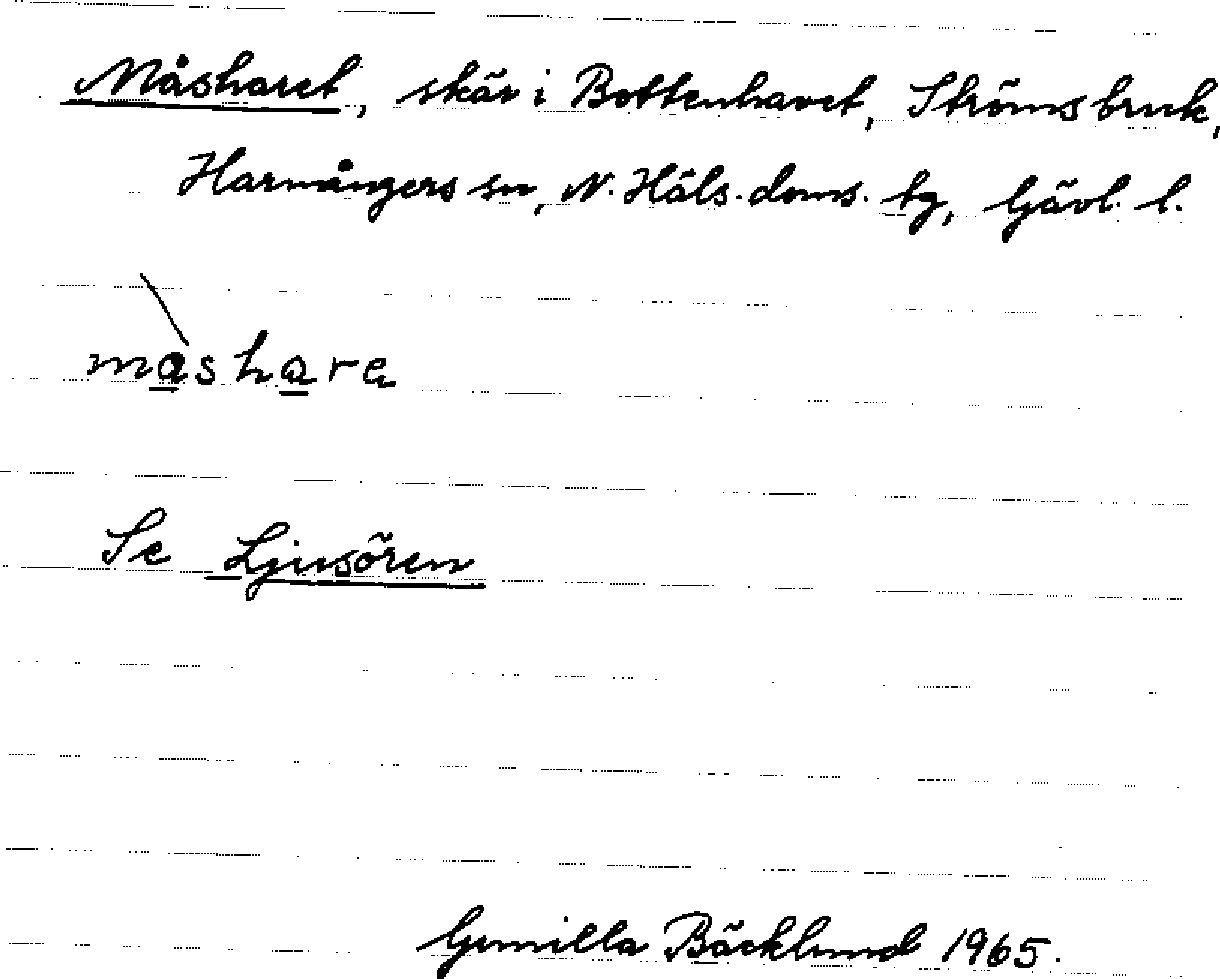 Måsharet, skär i Bottenhavet, Strömsbruk,
Harmångers sn, N. Häls. doms. tg, Gävl. l.
måshara
Se Ljusören
Gunilla Bäcklund 1965.